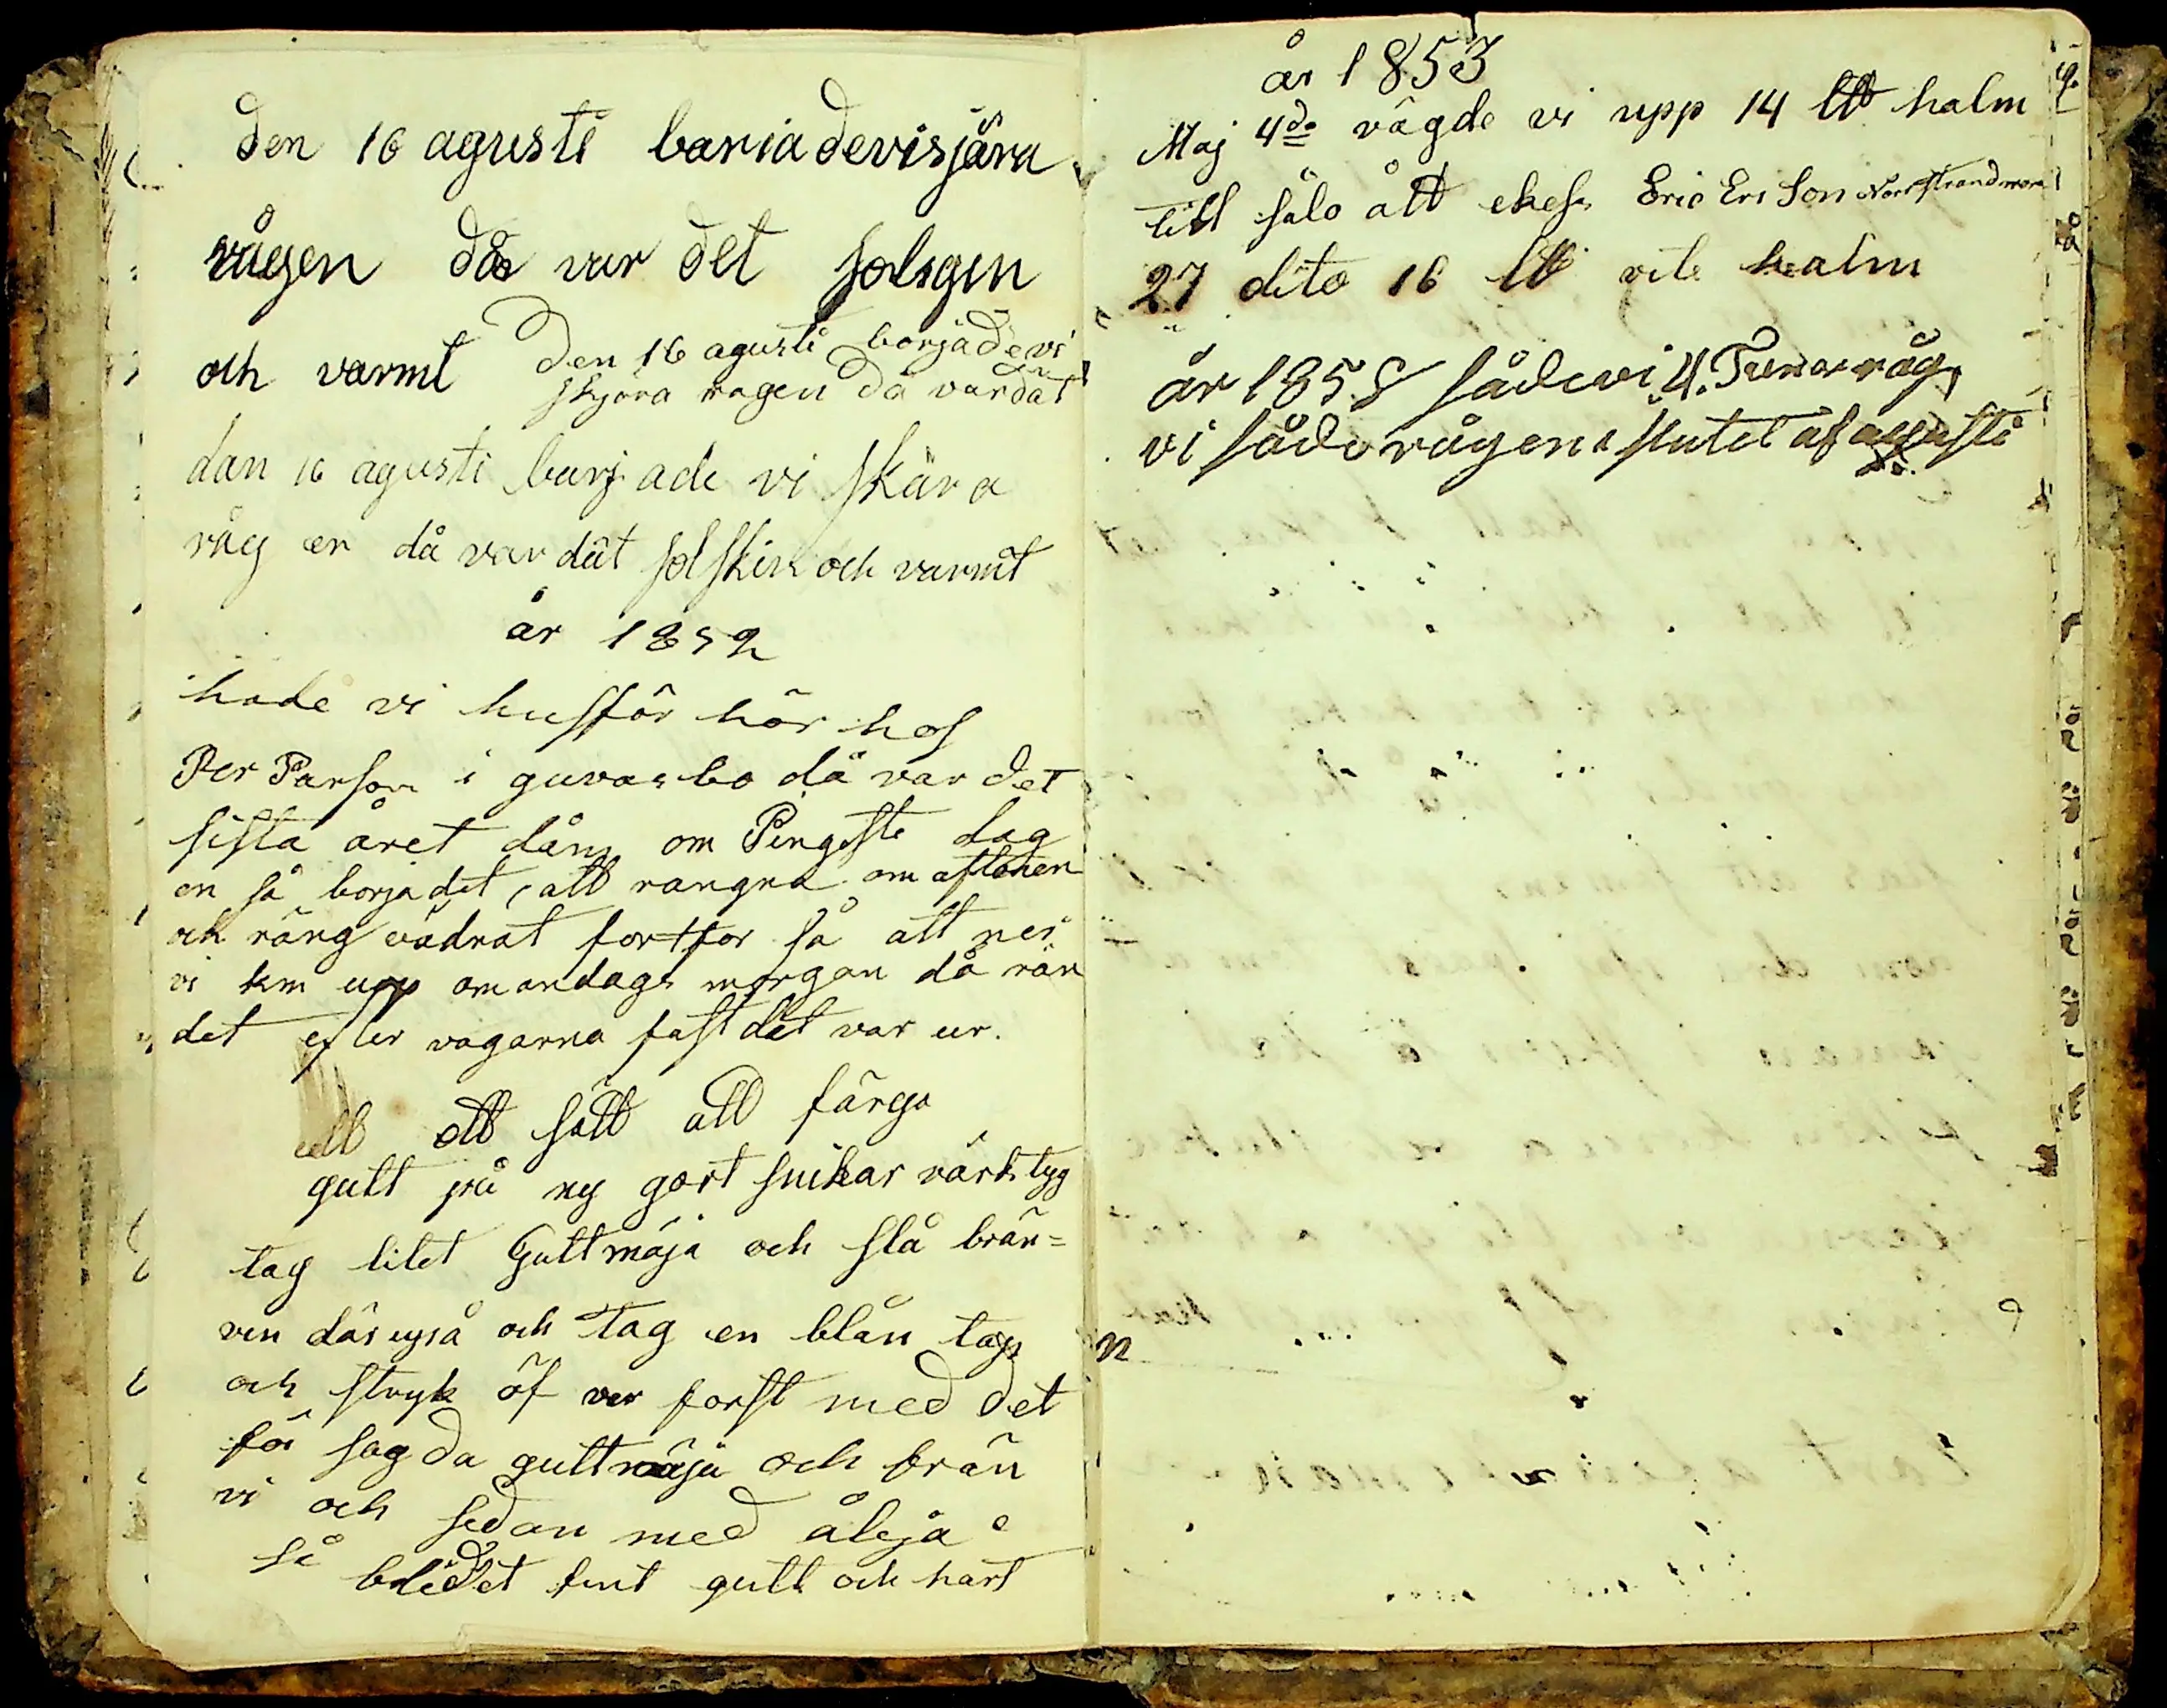 den 16 agusti bariadevisjära
rågen då var det solsgin
och varmt
den 16 agusti borjade vi
skjöra rågen då var dat
dan 16 agusti barjade vi skära
råg en då var dät solskin och varmt
år 1852
hade vi husför hör hos
Per Parson i guvarbo då var det
sista året dåm om Pingste dag
en så borjadet, att rängna om aftonen
och räng vädrat fortfor så att nei
vi km upp omandags morgan då rän
det efter vägarna fast dät var ur.
ett ett sätt att färga
gult på ny gort snikar värktyg
tag litet Gultmäja och slå brän=
ven där uppå och tag en blån tapp
och stryk öf ver forst med det
för sagda gultmäja och brän
vi och sedan med ålja
så blidet fint gult och hart
år 1853
Maj 4de vägde vi upp 14 L℔ halm
till sålo ått ekes Eric Erson Norstrandmora
27 dito 16 L℔ vite halm
år 1858 såde vi 4. Tunor råg
vi såde rågen i slutet af augusti
n